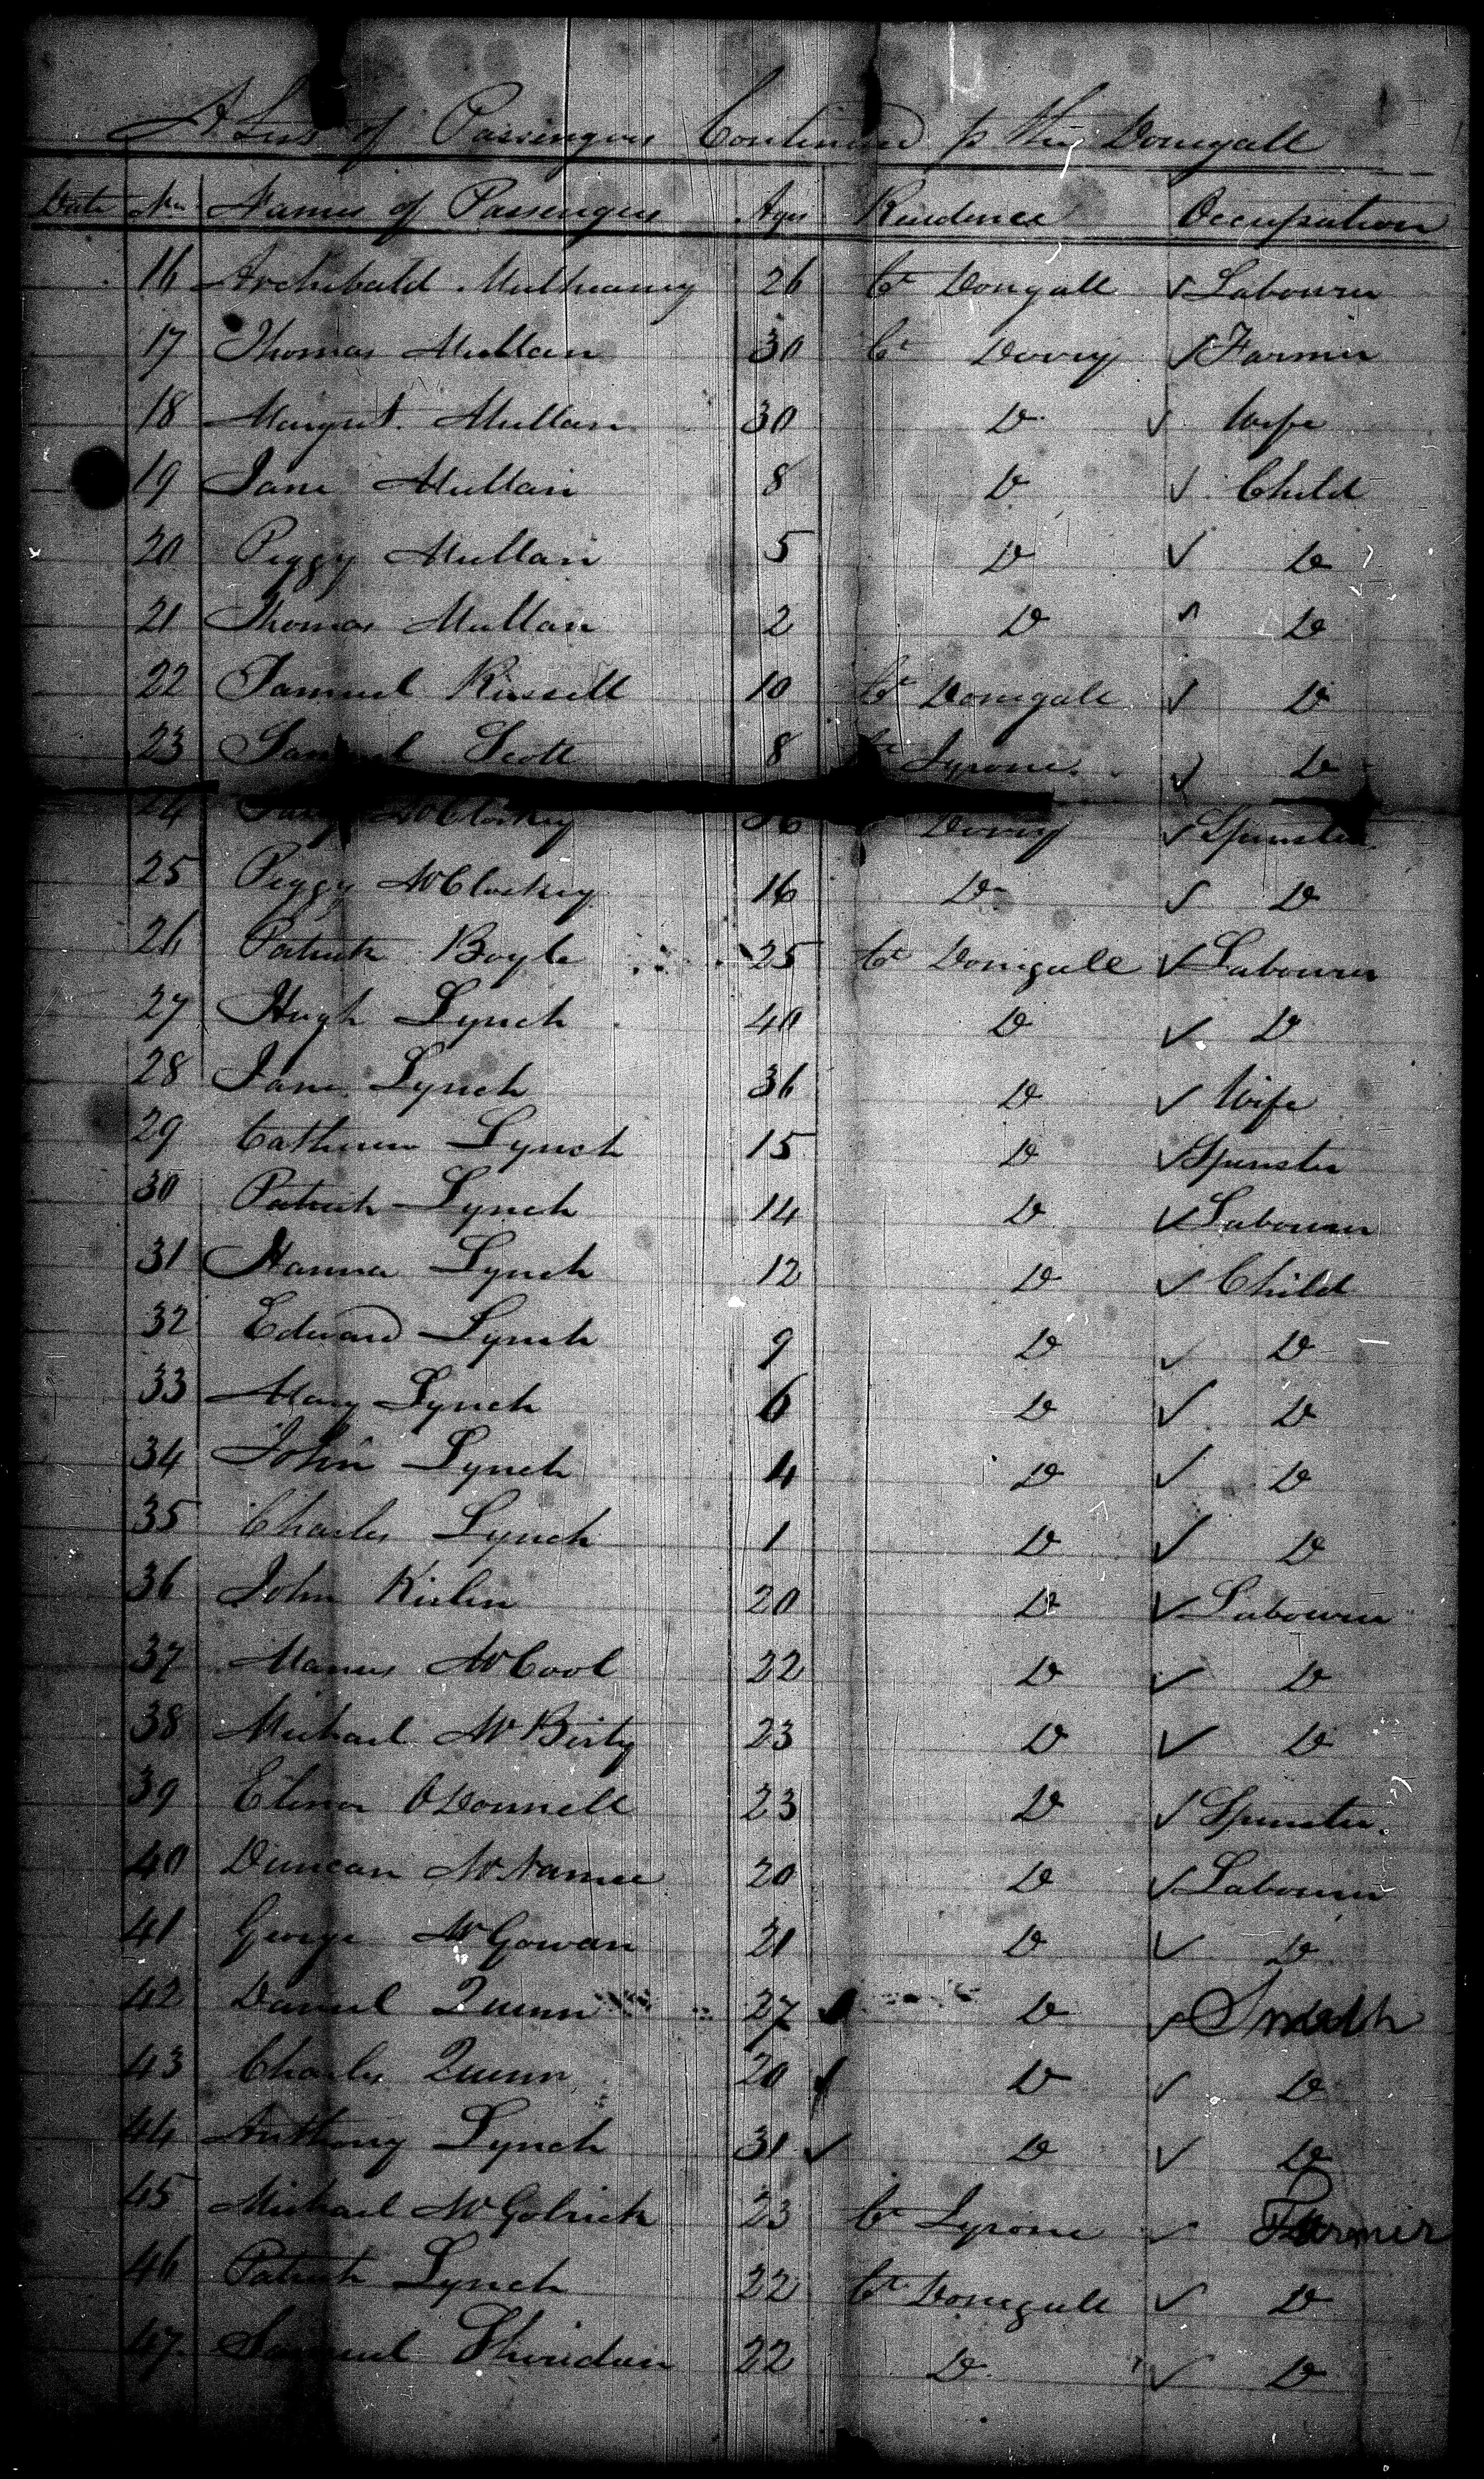 A List of Passengers Continued p Ship Donegall
Date No Names of Passengers Ages Residence Occupation
16 Archibald 26 Co Donegall Labourer
17 Thomas Mullan 30 Co Derry Farmer
18 Margret Mullan 30 Do Wife
19 Jane Mullan 8 Do Child
20 Peggy Mullan 5 Do Do
21 Thomas Mullan 2 Do Do
22 Samuel Russell 10 Co Donegall Do
23 Samuel Scott 8 Co Tyrone Do
24 McCloskey Derry Spinster
25 Peggy McCloskey 16 Do Do
26 Patrick Boyle 25 Co Donegall Labourer
27 Hugh Lynch 40 Do Do
28 Jane Lynch 36 Do Wife
29 Catherine Lynch 15 Do Spinster
30 Patrick Lynch 14 Do Labourer
31 Hanna Lynch 12 Do Child
32 Edward Lynch 9 Do Do
33 Mary Lynch 6 Do Do
34 John Lynch 4 Do Do
35 Charles Lynch 1 Do Do
36 John 20 Do Labourer
37 Manus McCool 22 Do Do
38 Michael McBirty 23 Do Do
39 Elenor ODonnell 23 Do Spinster
40 Duncan McNamee 20 Do Labourer
41 George McGowan 21 Do Do
42 Daniel Quinn 27 Do Smith
43 Charles Quinn 20 Do Do
44 Anthony Lynch 31 Do Do
45 Michael McGolrick 23 Co Tyrone Farmer
46 Patrick Lynch 22 Co Donegall Do
47 Samuel Sheridan 22 Do Do